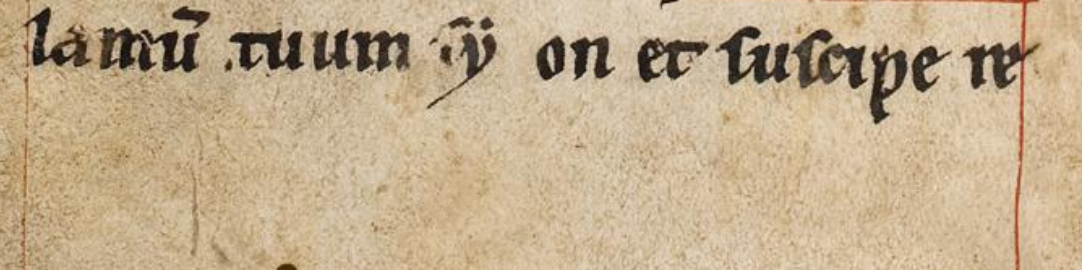 lamū tuum sÿ on et suscipe re